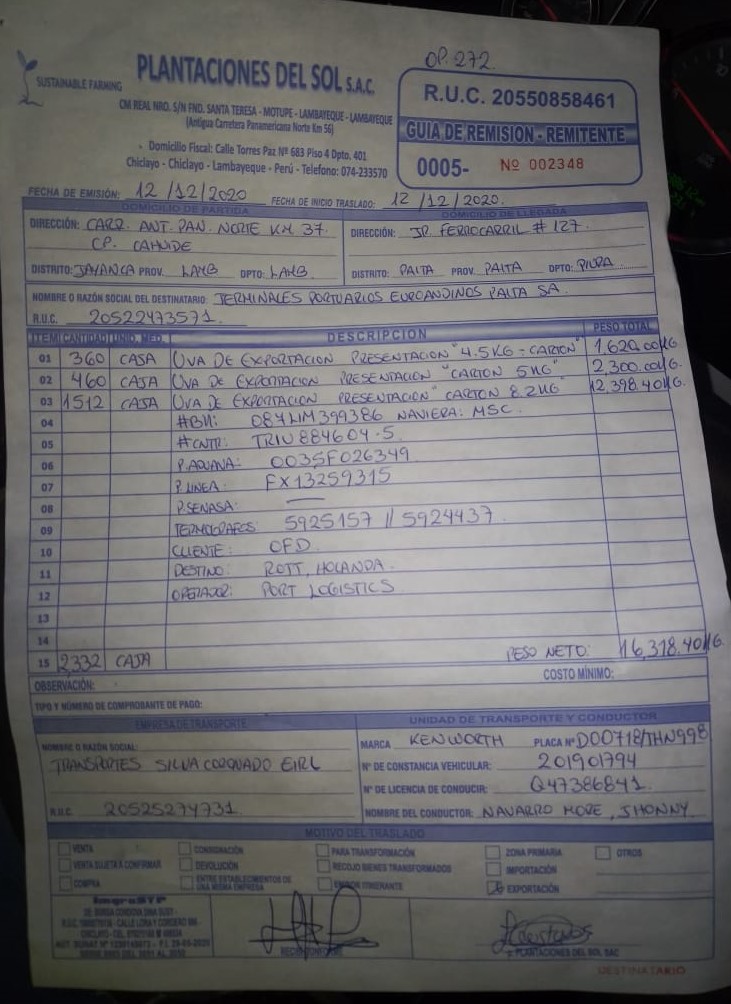 OP. 272
SUSTAINABLE FARMING
PLANTACIONES DEL SOL S.A.C.
CM REAL NRO. S/N FND. SANTA TERESA - MOTUPE - LAMBAYEQUE - LAMBAYEQUE
(Antigua Carretera Panamericana Norte Km 56)
Domicilio Fiscal: Calle Torres Paz Nº 683 Piso 4 Dpto. 401
Chiclayo - Chiclayo - Lambayeque - Perú - Telefono: 074-233570
R.U.C. 20550858461
GUIA DE REMISIÓN - REMITENTE
0005- Nº 002348
FECHA DE EMISIÓN: 12/12/2020 FECHA DE INICIO TRASLADO: 12/12/2020.
DOMICILIO DE PARTIDA
DIRECCIÓN: CARR. ANT. PAN. NORTE KM 37.
CP. CAHUIDE
DISTRITO: JAYANCA PROV. LAMB DPTO: LAMB.
DOMICILIO DE LLEGADA
DIRECCIÓN: JR. FERROCARRIL # 127.
DISTRITO: PAITA PROV. PAITA DPTO: PIURA
NOMBRE O RAZÓN SOCIAL DEL DESTINATARIO: TERMINALES PORTUARIOS EUROANDINOS PAITA SA.
R.U.C. 20522473571.
ITEM CANTIDAD UNID. MED. DESCRIPCION PESO TOTAL
01 360 CAJA UVA DE EXPORTACION PRESENTACION "4.5KG - CARTON" 1,620.00KG
02 460 CAJA UVA DE EXPORTACION PRESENTACION "CARTON 5KG" 2,300.00KG.
03 1512 CAJA UVA DE EXPORTACION PRESENTACION "CARTON 8.2KG 12,398.40KG.
04 #BK: 084LIM399386 NAVIERA: MSC.
05 #CNTR: TRIU884604-5.
06 P.ADUANA: 003SF026349
07 P.LINEA: FX13259315
08 P.SENASA: —
09 TERMOGRAFOS: 5925157 // 5924437.
10 CLIENTE: OFD.
11 DESTINO: ROTT, HOLANDA.
12 OPERADOR: PORT LOGISTICS.
13
14
15 2332 CAJA PESO NETO: 16,318.40KG.
OBSERVACIÓN: COSTO MÍNIMO:
TIPO Y NÚMERO DE COMPROBANTE DE PAGO:
EMPRESA DE TRANSPORTE
NOMBRE O RAZÓN SOCIAL:
TRANSPORTES SILVA CORONADO EIRL
R.U.C. 20525274731
UNIDAD DE TRANSPORTE Y CONDUCTOR
MARCA KENWORTH PLACA Nº D0O718/THN998
Nº DE CONSTANCIA VEHICULAR: 201901794
Nº DE LICENCIA DE CONDUCIR: Q47386841.
NOMBRE DEL CONDUCTOR: NAVARRO MORE, JHONNY.
MOTIVO DEL TRASLADO
VENTA CONSIGNACIÓN PARA TRANSFORMACIÓN ZONA PRIMARIA OTROS
VENTA SUJETA A CONFIRMAR DEVOLUCIÓN RECOJO BIENES TRANSFORMADOS IMPORTACIÓN
COMPRA ENTRE ESTABLECIMIENTOS DE UNA MISMA EMPRESA EMISOR ITINERANTE EXPORTACIÓN
P. PLANTACIONES DEL SOL SAC
DESTINATARIO